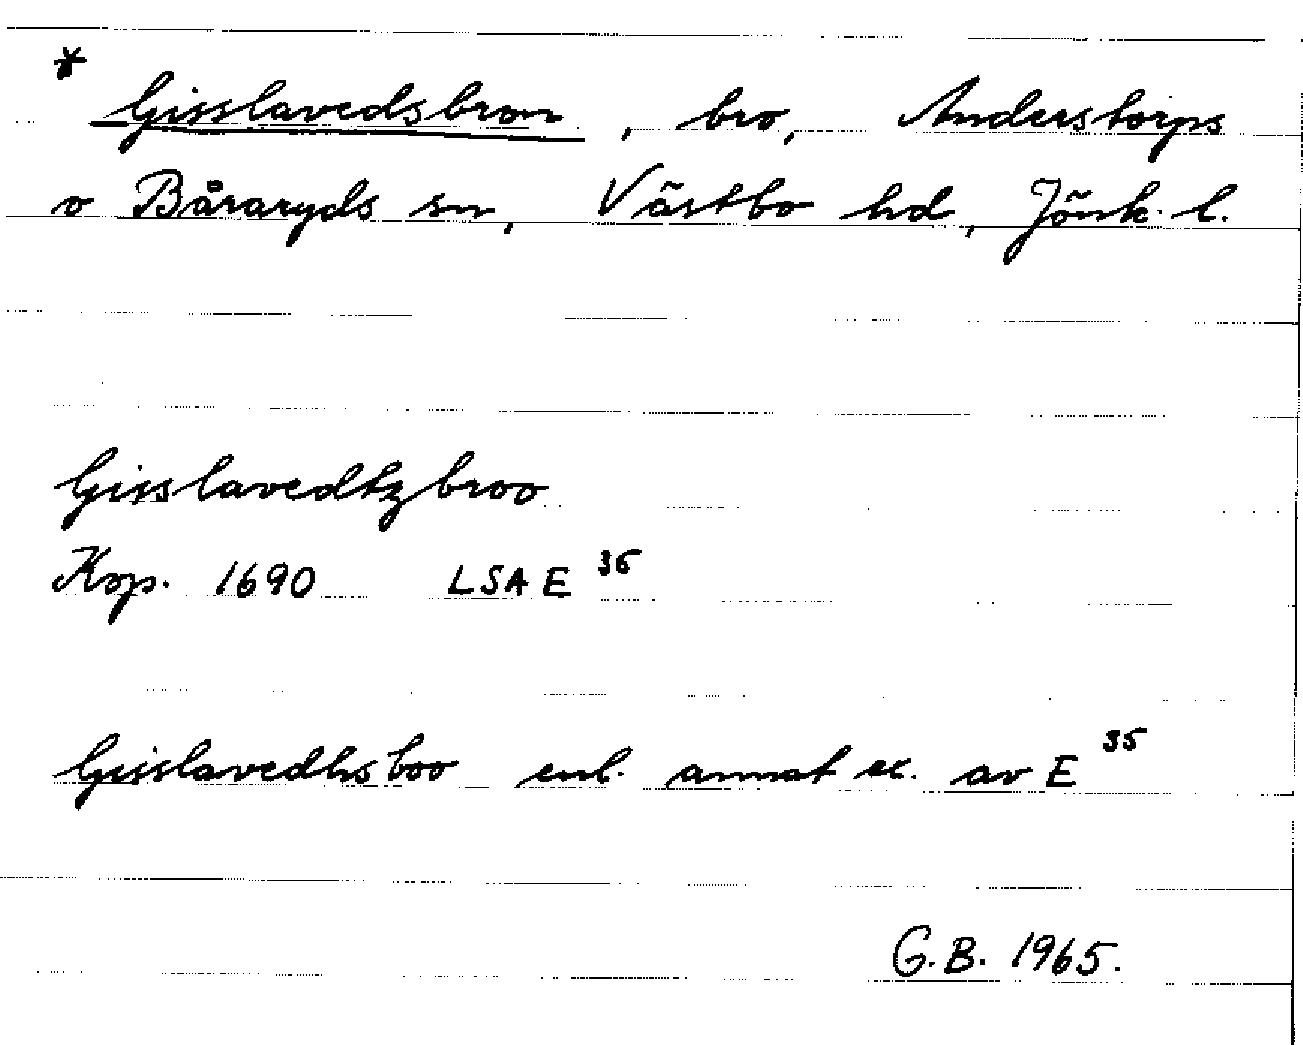 *
Gisslavedsbron, bro, Anderstorps
o Båraryds sn, Västbo hd, Jönk. l.
Gisslavedtzbroo
Kop. 1690 LSA E 36
Gisslavedhsboo enl. annat ex. av E 35
G.B. 1965.